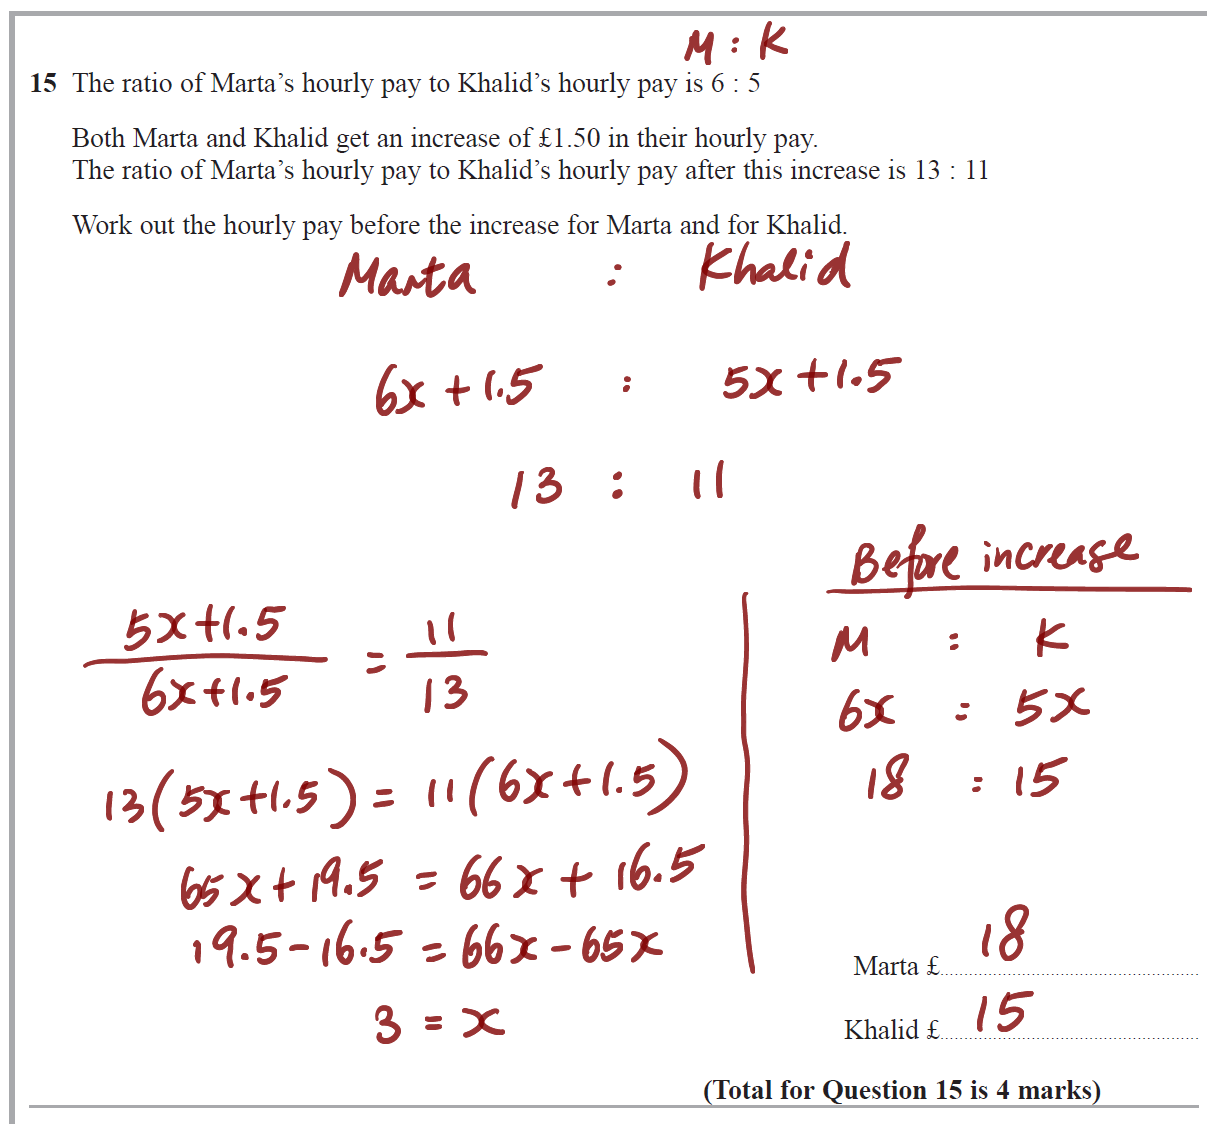 M : K
15 The ratio of Marta's hourly pay to Khalid's hourly pay is 6 : 5
Both Marta and Khalid get an increase of £1.50 in their hourly pay.
The ratio of Marta's hourly pay to Khalid's hourly pay after this increase is 13 : 11
Work out the hourly pay before the increase for Marta and for Khalid.
Marta : Khalid
6x + 1.5 : 5x + 1.5
13 : 11
5x+1.5 / 6x+1.5 = 11 / 13
13(5x+1.5) = 11(6x+1.5)
65x + 19.5 = 66x + 16.5
19.5 - 16.5 = 66x - 65x
3 = x
Before increase
M : K
6x : 5x
18 : 15
Marta £ 18
Khalid £ 15
(Total for Question 15 is 4 marks)